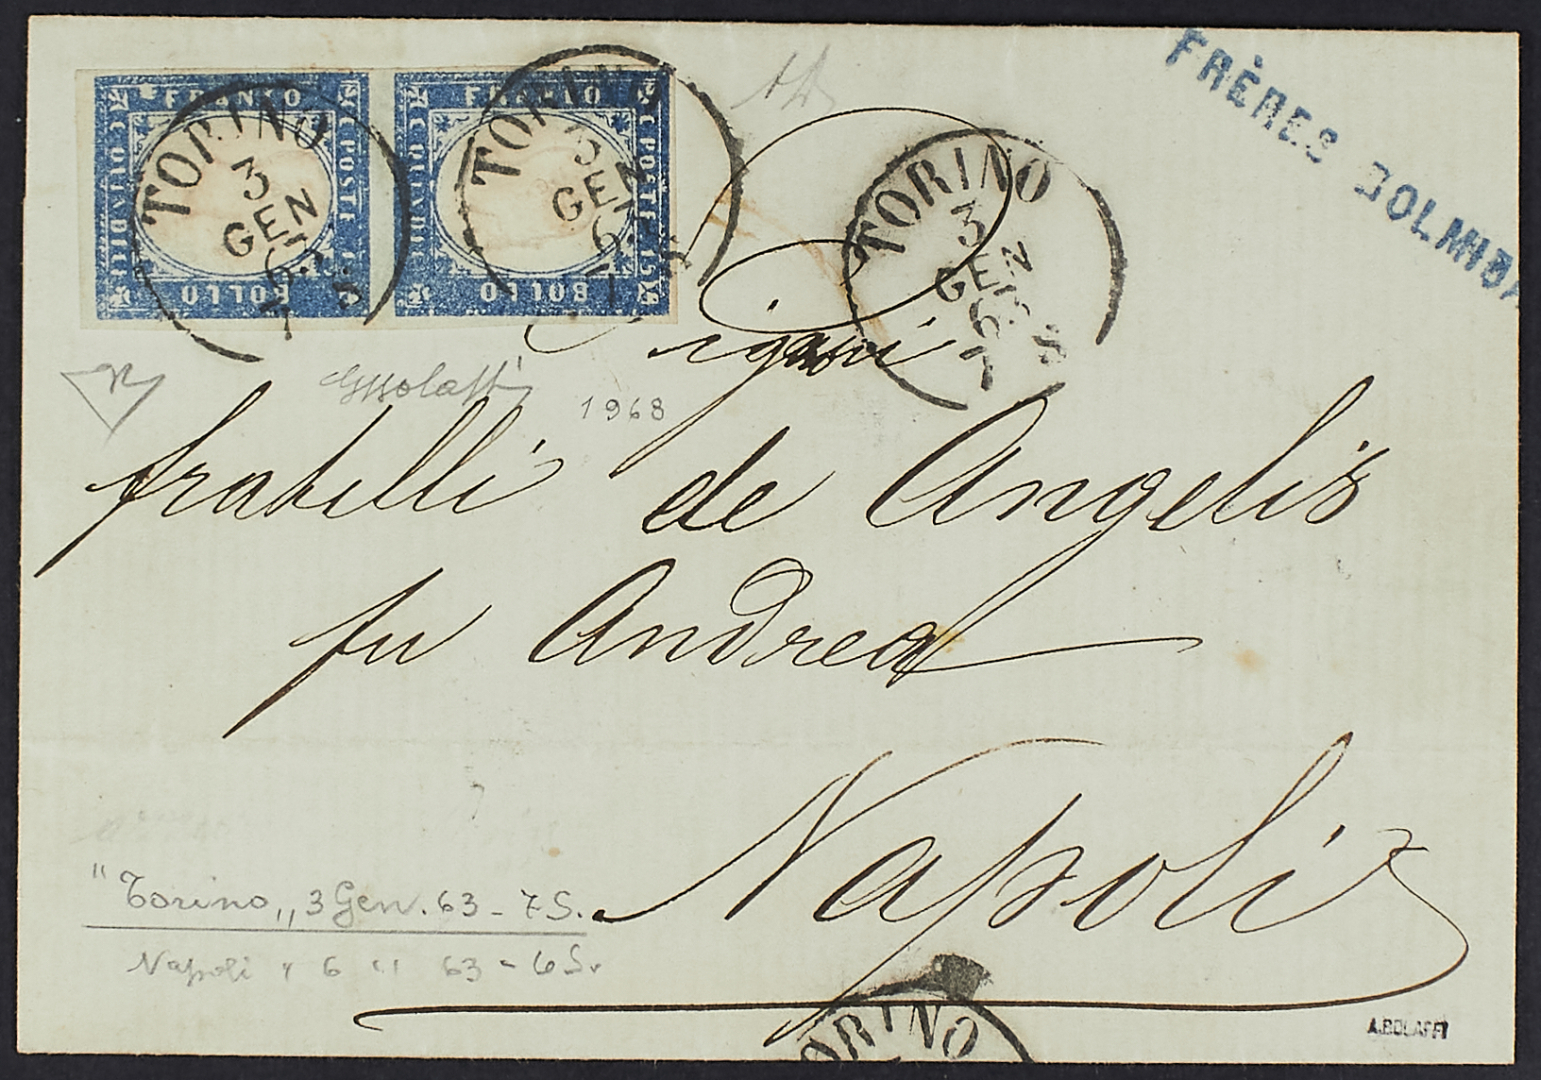 FRANCO
C POSTE
BOLLO
FRANCO
C POSTE
BOLLO
TORINO
3
GEN
63
7 S
TORINO
3
GEN
63
7 S
TORINO
3
GEN
63
7 S
FRÈRES DOLMIDA
Sigori
1968
fratelli de Angelis
fu Andrea
Napoli
"Torino,, 3 Gen. 63 - 7 S.
Napoli " 6 " 63 - 6 S.
TORINO
A.BOLAFFI